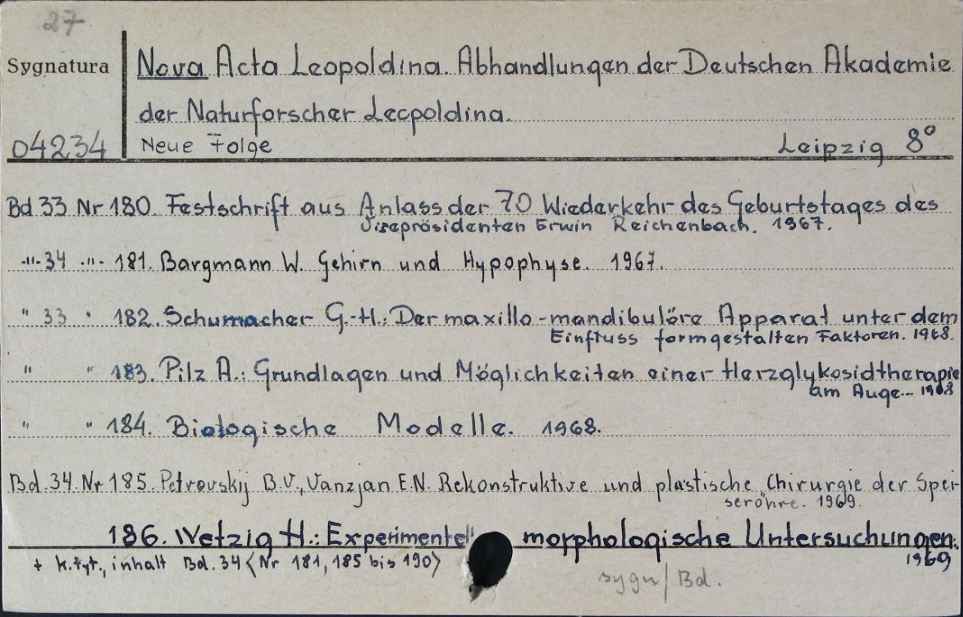 27
Sygnatura
Nova Acta Leopoldina. Abhandlungen der Deutschen Akademie
der Naturforscher Leopoldina.
04234 Neue Folge Leipzig 8°
Bd 33 Nr 180. Festschrift aus Anlass der 70 Wiederkehr des Geburtstages des
Vizepräsidenten Erwin Reichenbach. 1967.
-"- 34 -"- 181. Bargmann W. Gehirn und Hypophyse. 1967.
" 33 " 182. Schumacher G.-H.: Der maxillo-mandibuläre Apparat unter dem
Einfluss formgestalten Faktoren. 1968.
" " 183. Pilz A.: Grundlagen und Möglichkeiten einer Herzglykosidtherapie
am Auge... 1968
" " 184. Biologische Modelle. 1968.
Bd. 34. Nr 185. Petrovskij B.V., Vanzjan E.N. Rekonstruktive und plastische Chirurgie der Spei-
seröhre. 1969.
186. Wetzig H.: Experimentell morphologische Untersuchungen.
1969
+ k.tyt., inhalt Bd. 34 <Nr 181, 185 bis 190>
sygn/Bd.